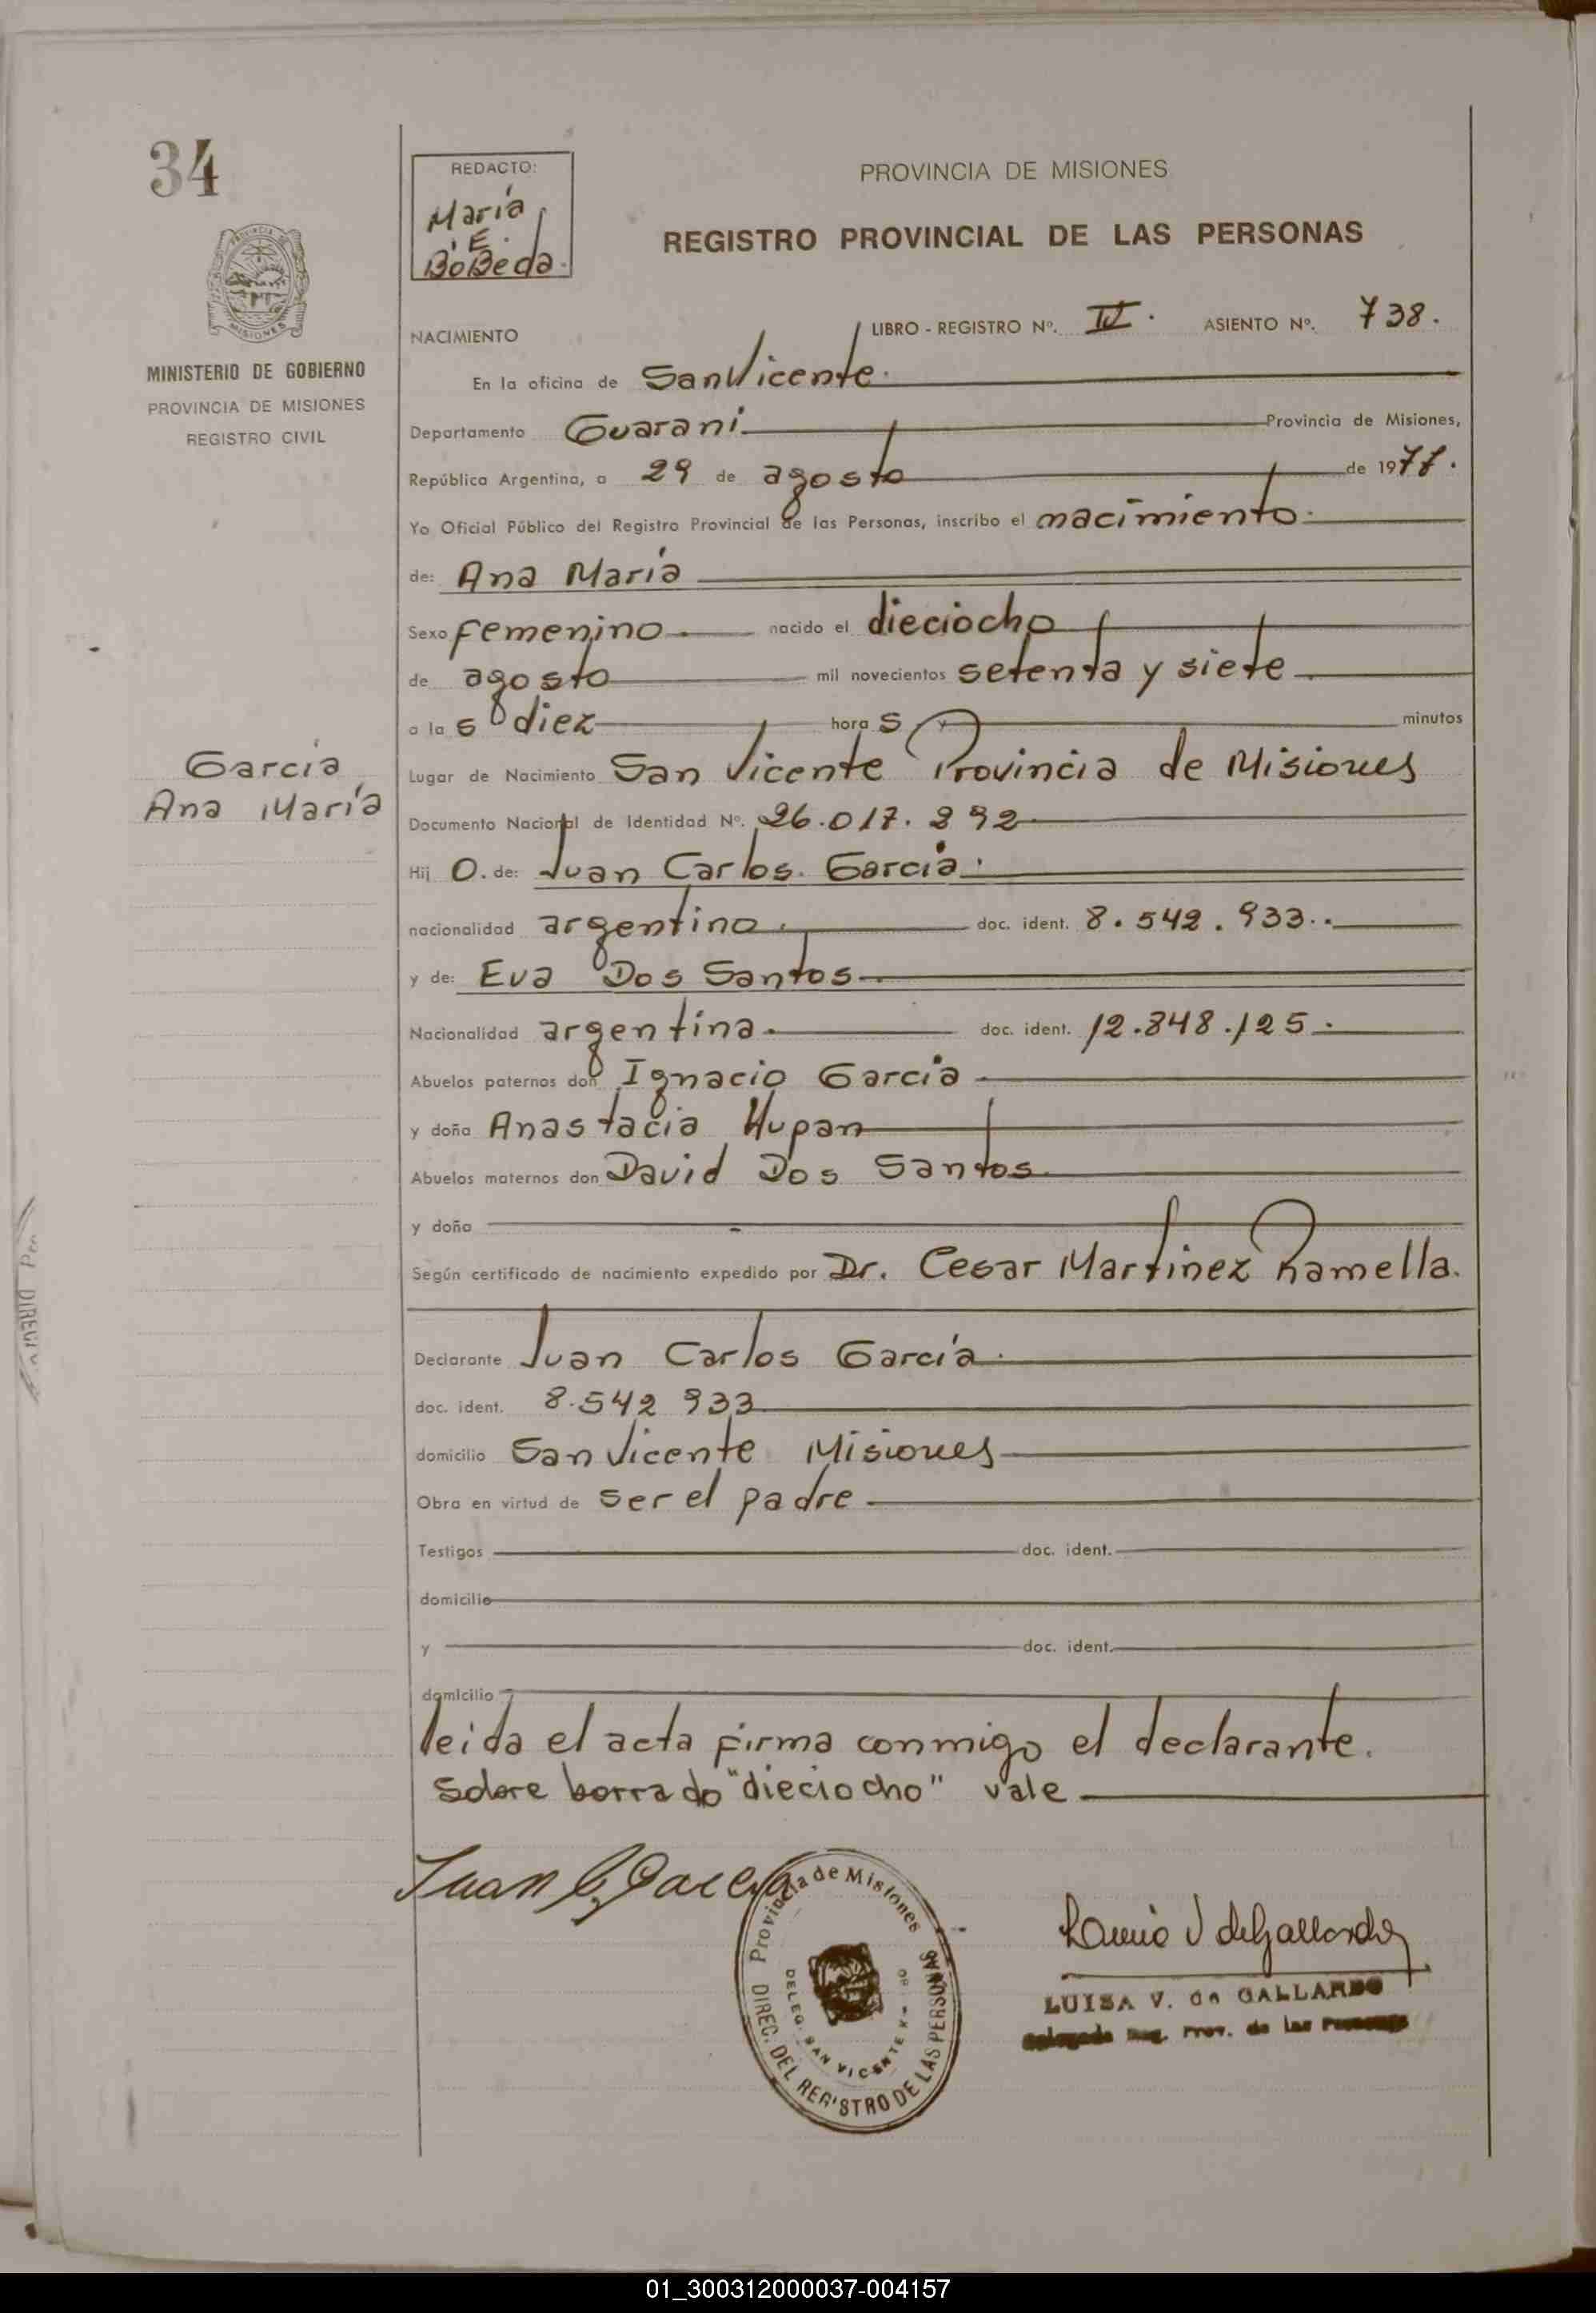 34
REDACTO:
María
E.
BoBeda.
PROVINCIA DE MISIONES
REGISTRO PROVINCIAL DE LAS PERSONAS
MINISTERIO DE GOBIERNO
PROVINCIA DE MISIONES
REGISTRO CIVIL
NACIMIENTO LIBRO - REGISTRO Nº. IV. ASIENTO Nº. 738.
En la oficina de San Vicente.
Departamento Guaraní Provincia de Misiones,
República Argentina, a 29 de agosto de 1977.
Yo Oficial Público del Registro Provincial de las Personas, inscribo el nacimiento.
de: Ana María
Sexo femenino. nacido el dieciocho
de agosto mil novecientos setenta y siete
a las diez horas y minutos
García
Ana María
Lugar de Nacimiento San Vicente Provincia de Misiones
Documento Nacional de Identidad Nº. 26.017.292
Hij O. de: Juan Carlos. García.
nacionalidad argentino. doc. ident. 8.542.933..
y de: Eva Dos Santos.
Nacionalidad argentina. doc. ident. 12.848.125.
Abuelos paternos don Ignacio García
y doña Anastacia Hupan
Abuelos maternos don David Dos Santos.
y doña
Según certificado de nacimiento expedido por Dr. Cesar Martinez Ramella.
Declarante Juan Carlos García.
doc. ident. 8.542 933
domicilio San Vicente Misiones
Obra en virtud de ser el padre
Testigos doc. ident.
domicilio
y doc. ident.
domicilio
leida el acta firma conmigo el declarante.
Sobre borrado "dieciocho" vale
Juan C. Garcia
Provincia de Misiones
DIREC. DEL REGISTRO DE LAS PERSONAS
DELEG. SAN VICENTE
LUISA V. de GALLARDO
Delegada Reg. Prov. de las Personas
01_300312000037-004157